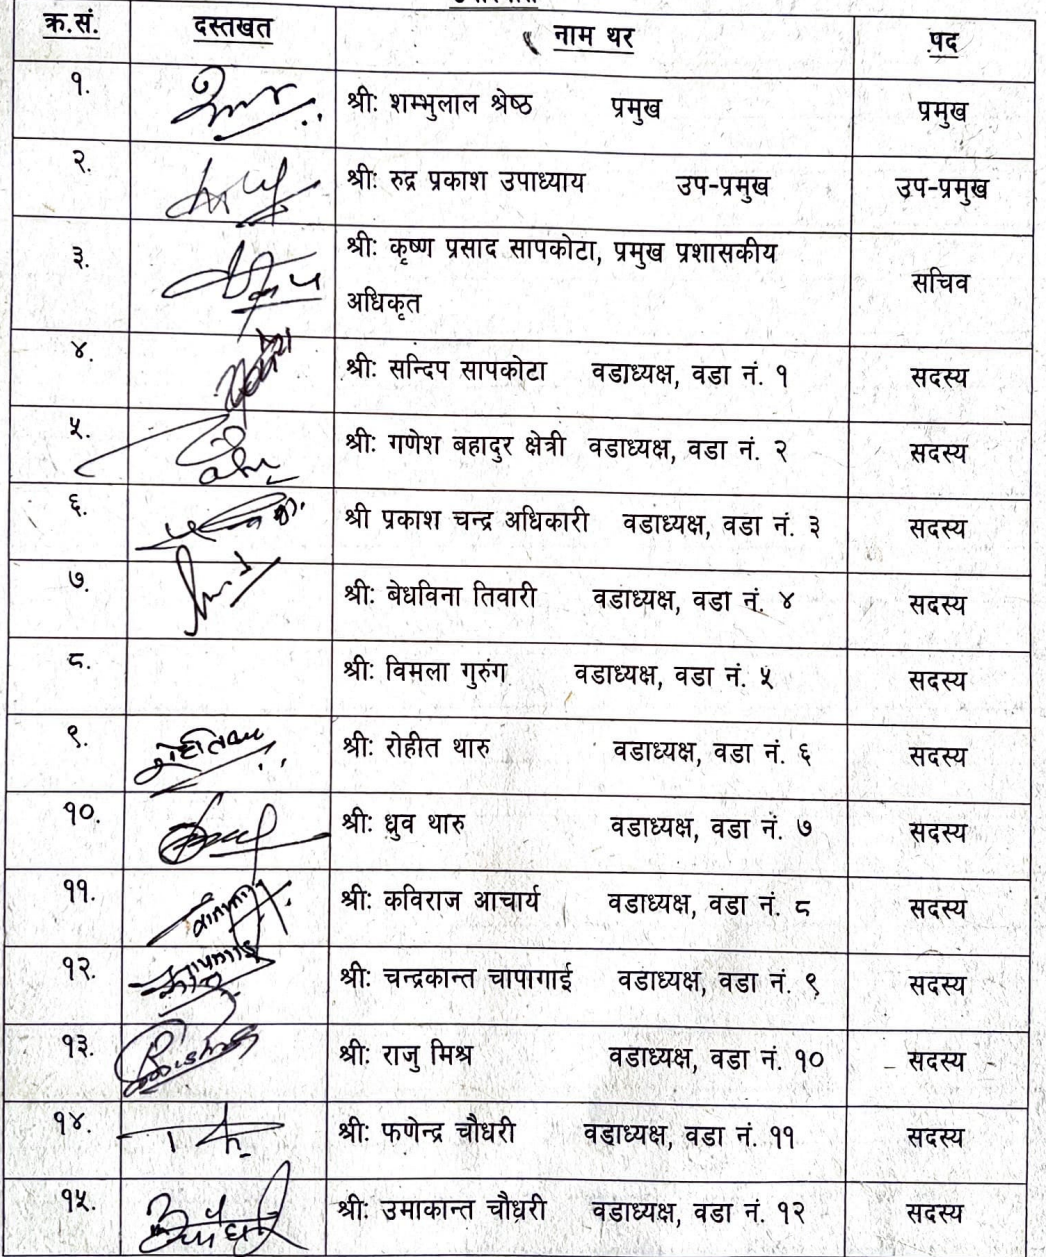 क्र.सं. दस्तखत नाम थर पद
१. श्री: शम्भुलाल श्रेष्ठ प्रमुख प्रमुख
२. श्री: रुद्र प्रकाश उपाध्याय उप-प्रमुख उप-प्रमुख
३. श्री: कृष्ण प्रसाद सापकोटा, प्रमुख प्रशासकीय
अधिकृत सचिव
४. श्री: सन्दिप सापकोटा वडाध्यक्ष, वडा नं. १ सदस्य
५. श्री: गणेश बहादुर क्षेत्री वडाध्यक्ष, वडा नं. २ सदस्य
६. श्री प्रकाश चन्द्र अधिकारी वडाध्यक्ष, वडा नं. ३ सदस्य
७. श्री: बेधविना तिवारी वडाध्यक्ष, वडा नं. ४ सदस्य
८. श्री: विमला गुरुंग वडाध्यक्ष, वडा नं. ५ सदस्य
९. श्री: रोहीत थारु वडाध्यक्ष, वडा नं. ६ सदस्य
१०. श्री: ध्रुव थारु वडाध्यक्ष, वडा नं. ७ सदस्य
११. श्री: कविराज आचार्य वडाध्यक्ष, वडा नं. ८ सदस्य
१२. श्री: चन्द्रकान्त चापागाई वडाध्यक्ष, वडा नं. ९ सदस्य
१३. श्री: राजु मिश्र वडाध्यक्ष, वडा नं. १० सदस्य
१४. श्री: फणेन्द्र चौधरी वडाध्यक्ष, वडा नं. ११ सदस्य
१५. श्री: उमाकान्त चौधरी वडाध्यक्ष, वडा नं. १२ सदस्य